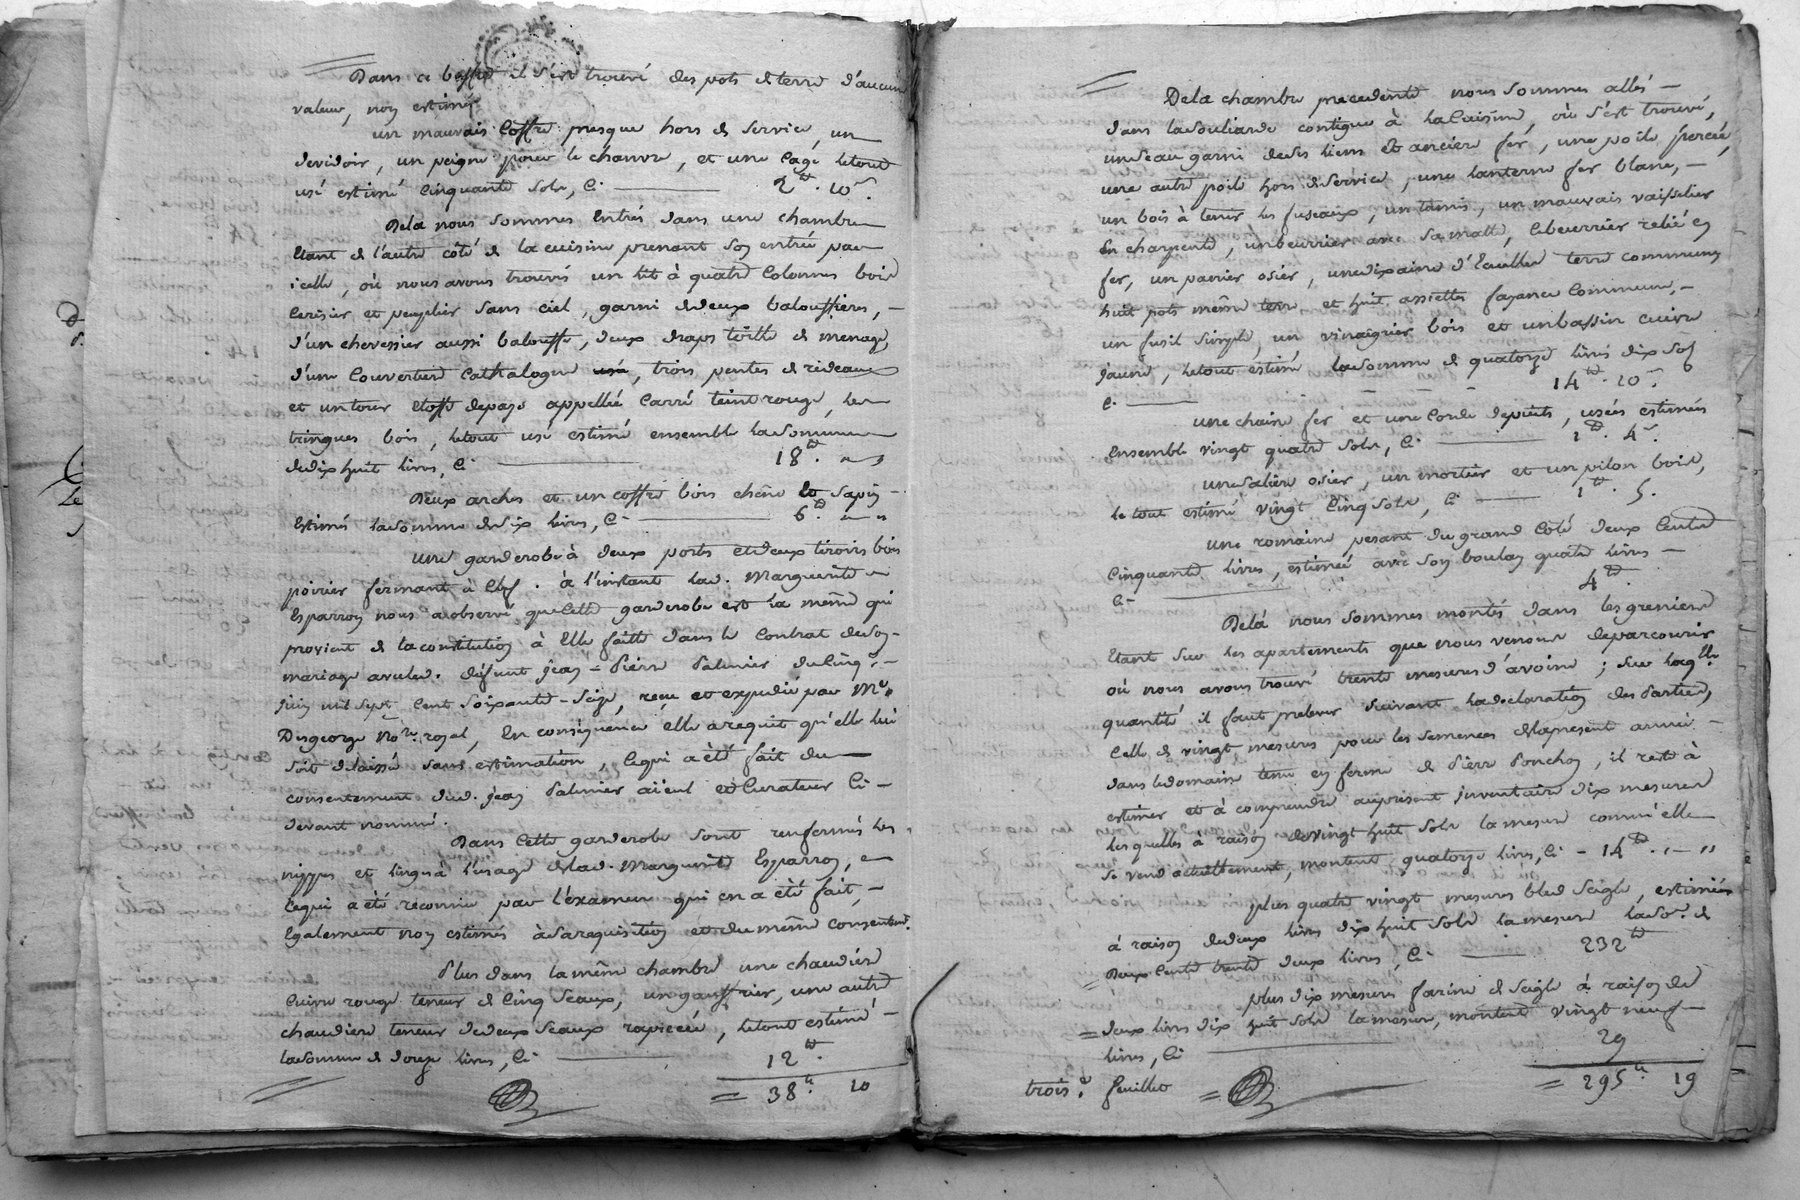 Dans ce buffet il s'est trouvé des pots de terre d'aucune
valeur, non estimés
un mauvais Coffre presque hors de service, un
devidoir, un peigne pour le chanvre, et une Cage letout
usé estimé Cinquante Sols, Ci 2tt. 10s.
Delà nous sommes Entrés dans une chambre
Etant de l'autre côté de la cuisine prenant son entrée par
icelle, où nous avons trouvés un lit à quatre Colonnes bois
Cerisier et peuplier sans ciel, garni dedeux balouffieres,
d'un chevessier aussi balouffe, deux draps toille de menage,
d'une Couverture Cathalogne usé, trois pentes de rideaux
et untour etoffe depays appellée Carré teint rouge, les
tringues bois, letout usé estimé ensemble lasomme
dedix huit livres, Ci 18tt. " "
Deux arches et un coffre bois chêne et sapin
Estimés lasomme desix livres, Ci 6tt " "
une garderobe à deux portes et deux tiroirs bois
poirier fermant à Clef. à l'instant lad. Marguerite
Esparron nous a observé que Cette garderobe est la même qui
provient de la constitution à Elle faitte dans le Contrat deson
mariage avecled. défunt jean = Pierre Palmier du Cinq.e
juin mil sept Cent soixante-seize, reçu et expedié par Me
Desgeorge Nore. royal, En conséquence elle a requit qu'elle lui
soit delaissé sans estimation, Cequi a été fait du
consentement dud. jean Palmier aïeul et Curateur Ci-
devant nommé.
Dans Cette garderobe sont renfermés les
nippes et linges à l'usage delad. Marguerite Esparron,
Cequi a été reconnu par l'éxamen qui en a été fait,
Egalement non estimés àsarequisition et du même consentemt.
Plus dans la même chambre une chaudiere
Cuivre rouge teneur de Cinq Seaux, un gauffrier, une autre
chaudiere teneur dedeux Seaux rapiecée, letout estimé
lasomme de douze livres, Ci 12tt.
= 38tt. 10
Dela chambre precedente nous sommes allés
dans lasouliarde contigue à la Cuisine, où s'est trouvé,
unseau garni deses liens et anciere fer, une poële percée,
une autre poële hors deservice, une lanterne fer blanc,
un bois à tenir les fuseaux, un tamis, un mauvais vaisselier
En charpente, unbeurrier avec sa matte, lebeurrier relié en
fer, un panier osier, unedixaine d'Ecuelles terre commune
huit pots même terre et huit assiettes fayance Commune,
un fusil simple, un vinaigrier bois et unbassin cuivre
jaune, letout estimé lasomme de quatorze livres dix sols
Ci 14tt. 10s.
une chaine fer et une Corde depuits, usées estimées
Ensemble vingt quatre sols, Ci 1tt. 4s.
unesaliere osier, un mortier et un pilon bois,
le tout estimé vingt Cinq sols, Ci 1tt. 5.
une romaine pesant du grand Côté deux Cents
Cinquante livres, estimée avec son boulon quatre livres
Ci 4tt.
Delà nous sommes montés dans les greniers
Etant sur les apartements que nous venons deparcourir
où nous avons trouvé trente mesures d'avoine; sur laqelle
quantité il faut prelever suivant ladeclaration des Parties,
Celle de vingt mesures pour les semences delapresent année
dans ledomaine tenu en ferme de Pierre Ponchon, il reste à
estimer et à comprendre auprésent inventaire dix mesures
lesquelles à raison devingt huit sols la mesure comm'elle
se vend actuellement, montent quatorze livres, Ci - 14tt. " "
plus quatre vingt mesures bled seigle, estimées
à raison dedeux livres dix huit sols lamesure laso. de
Deux Cents trente deux livres, Ci 232tt
plus dix mesures farine de seigle à raison de
= deux livres dix huit sols lamesure, montent vingt neuf
livres, Ci 29
trois.e feuillet = 295tt. 19